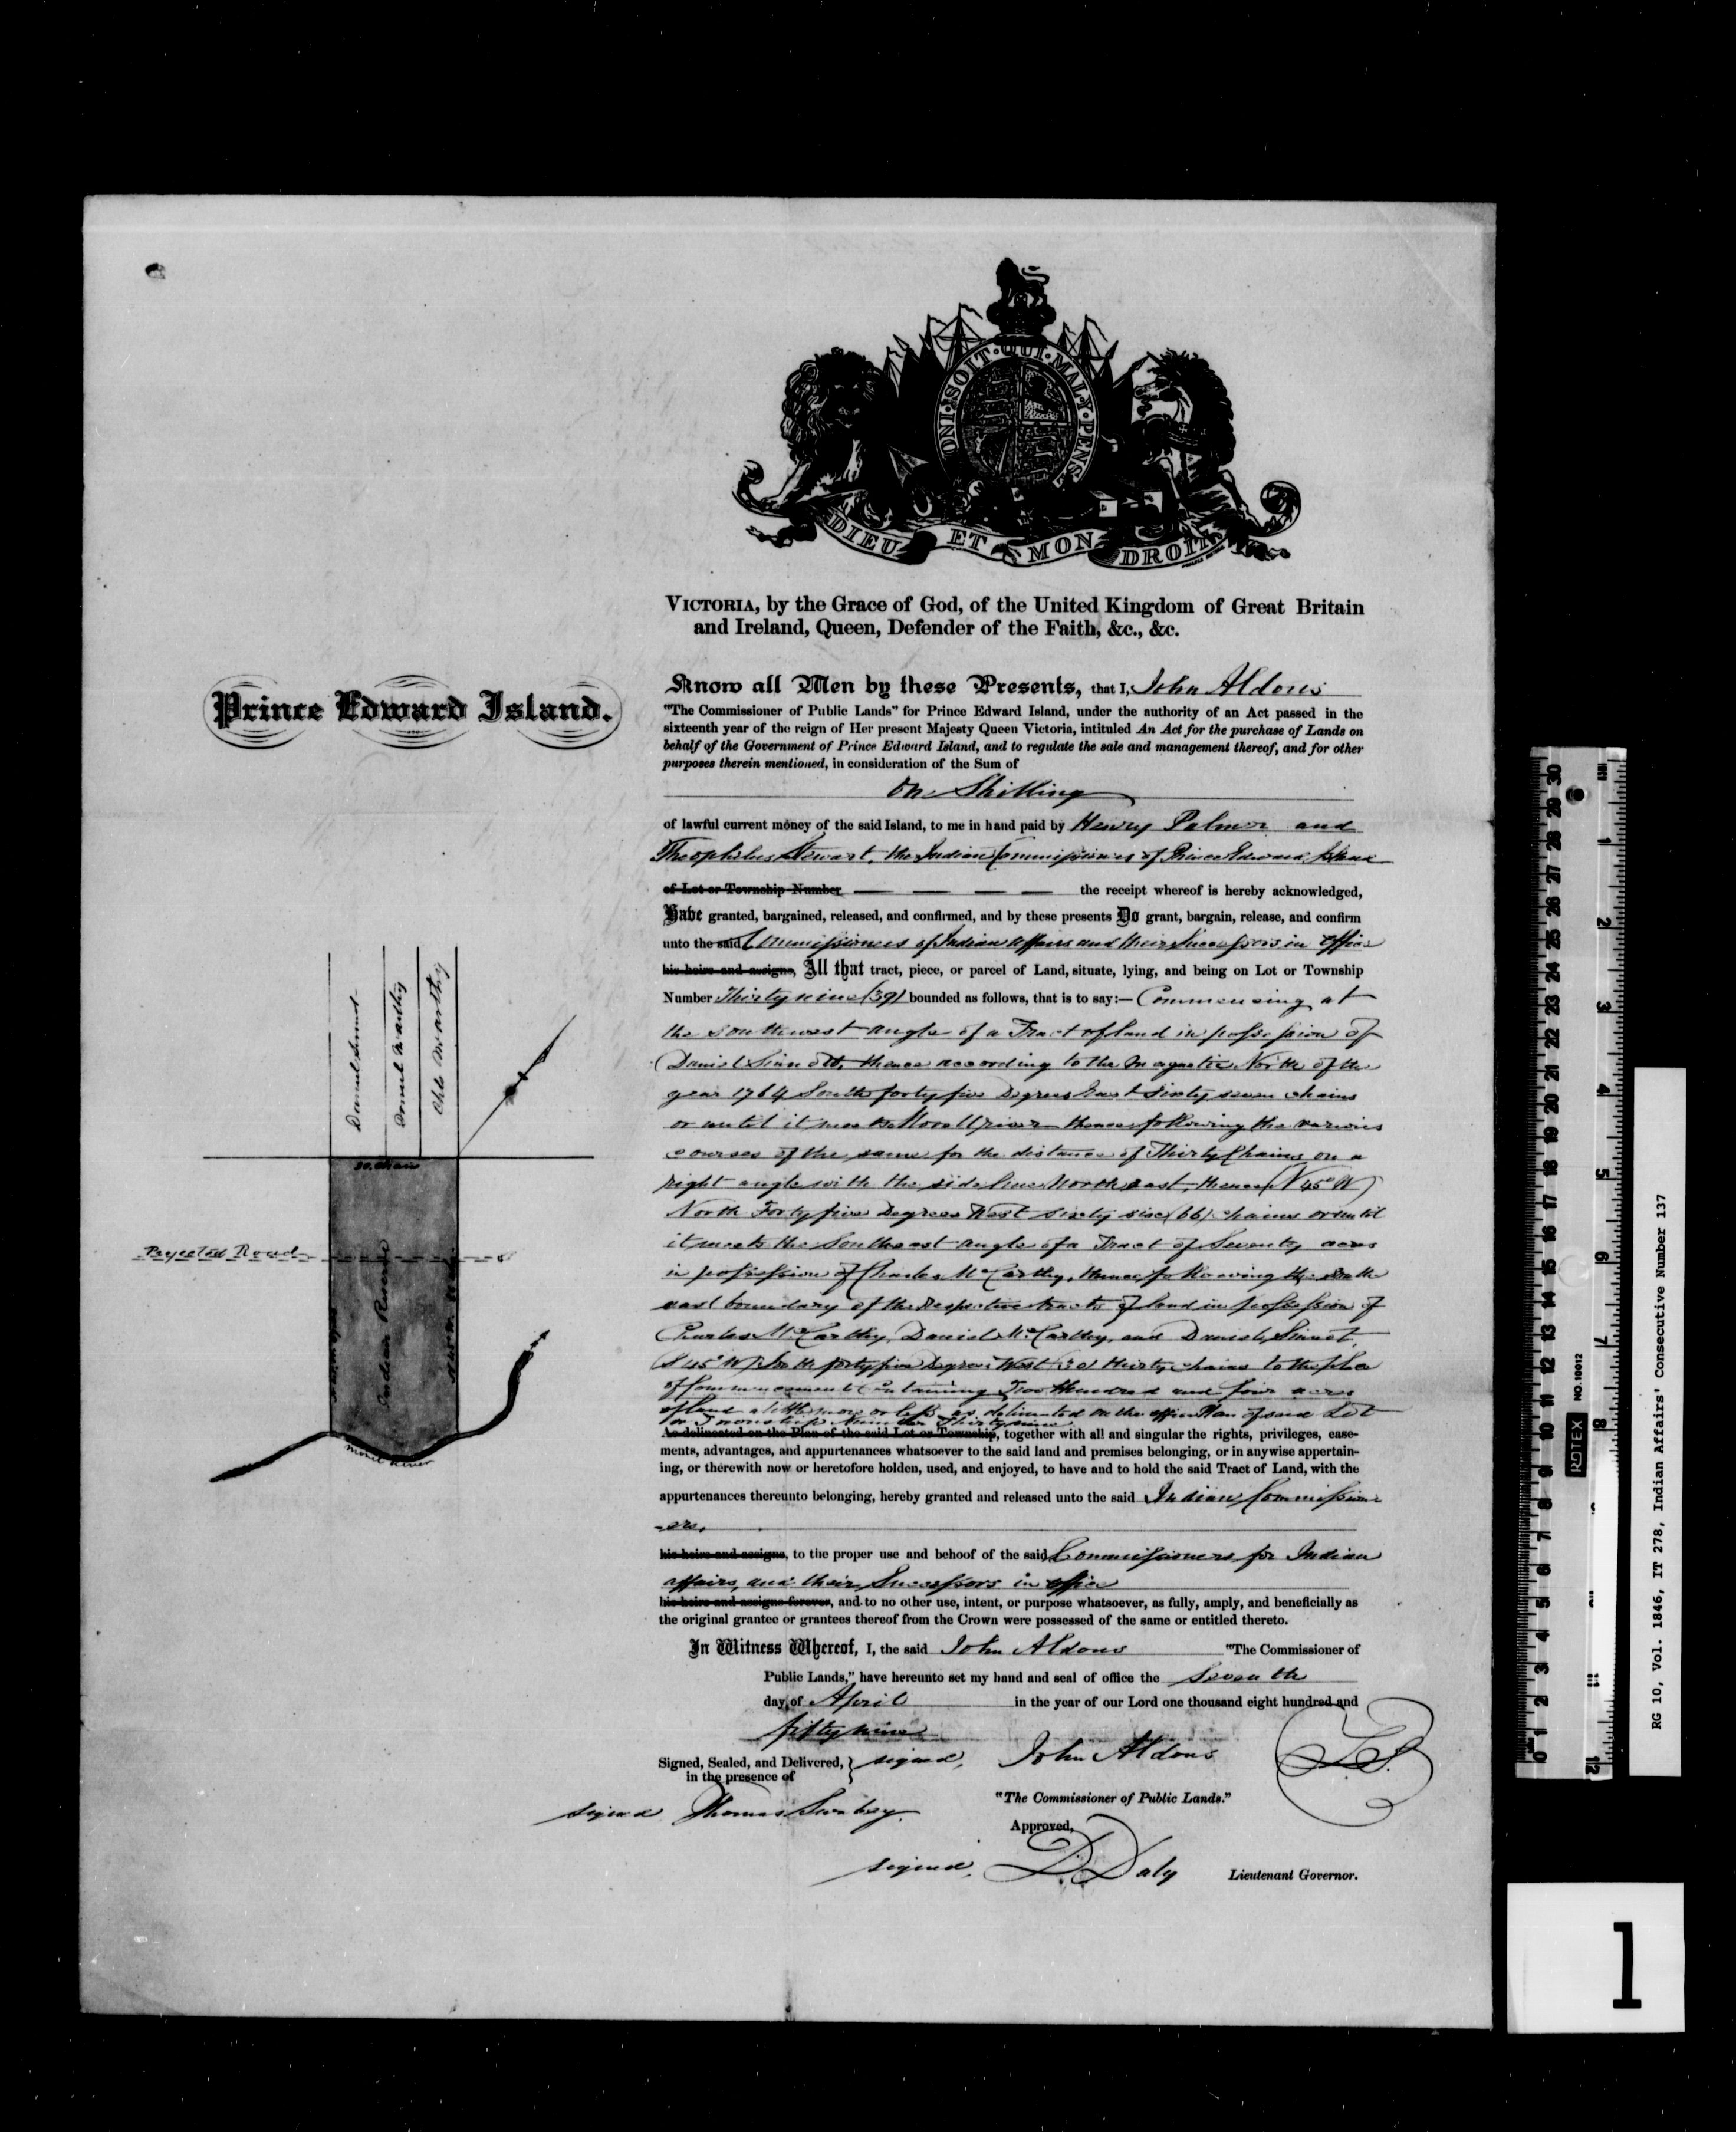 ONI·SOIT·QUI·MAL·Y·PENS
DIEU ET MON DROIT
VICTORIA, by the Grace of God, of the United Kingdom of Great Britain
and Ireland, Queen, Defender of the Faith, &c., &c.
Prince Edward Island.
Know all Men by these Presents, that I, John Aldous
"The Commissioner of Public Lands" for Prince Edward Island, under the authority of an Act passed in the
sixteenth year of the reign of Her present Majesty Queen Victoria, intituled An Act for the purchase of Lands on
behalf of the Government of Prince Edward Island, and to regulate the sale and management thereof, and for other
purposes therein mentioned, in consideration of the Sum of
On Shilling
of lawful current money of the said Island, to me in hand paid by Henry Palmer and
Theophilus Stewart, the Indian Commissioners of Prince Edward Island
of Lot or Township Number the receipt whereof is hereby acknowledged,
Have granted, bargained, released, and confirmed, and by these presents Do grant, bargain, release, and confirm
unto the said Commissioners of Indian affairs and their Successors in office
his heirs and assigns, All that tract, piece, or parcel of Land, situate, lying, and being on Lot or Township
Number Thirty nine (39) bounded as follows, that is to say:— Commencing at
the Southwest angle of a Tract of land in possession of
Daniel Sinnott, thence according to the Magnetic North of the
year 1764 South forty five Degrees East Sixty seven chains
or until it meets Morell river thence following the various
courses of the same for the distance of Thirty Chains on a
right angle with the side lines North east, thence (N 45° W)
North Forty five Degrees West sixty six (66) chains or until
it meets the Southeast angle of a Tract of Seventy acres
in possession of Charles McCarthy, thence following the South
east boundary of the respective tracts of land in possession of
Charles McCarthy, Daniel McCarthy, and Daniel Sinnot
(S 45° W) South forty five Degrees West (30) thirty chains to the place
of Commencement Containing Two Hundred and four acres
of land a little more or less as delineated on the office Plan of said Lot
or Township Number Thirty nine
As delineated on the Plan of the said Lot or Township, together with all and singular the rights, privileges, ease-
ments, advantages, and appurtenances whatsoever to the said land and premises belonging, or in anywise appertain-
ing, or therewith now or heretofore holden, used, and enjoyed, to have and to hold the said Tract of Land, with the
appurtenances thereunto belonging, hereby granted and released unto the said Indian Commission
-ers.
his heirs and assigns, to the proper use and behoof of the said Commissioners for Indian
affairs, and their Successors in office
his heirs and assigns forever, and to no other use, intent, or purpose whatsoever, as fully, amply, and beneficially as
the original grantee or grantees thereof from the Crown were possessed of the same or entitled thereto.
In Witness Whereof, I, the said John Aldous "The Commissioner of
Public Lands," have hereunto set my hand and seal of office the Seventh
day of April in the year of our Lord one thousand eight hundred and
fifty nine
Signed, Sealed, and Delivered, } signed, John Aldous LS.
in the presence of
"The Commissioner of Public Lands."
signed Thomas Swabey.
Approved,
signed, D. Daly Lieutenant Governor.
Daniel Sinnot
Daniel McCarthy
Chls McCarthy
30 chains
Projected Road
Indian Reserve
Morell River
RG 10, Vol. 1846, IT 278, Indian Affairs' Consecutive Number 137
ROTEX NO. 10012
1